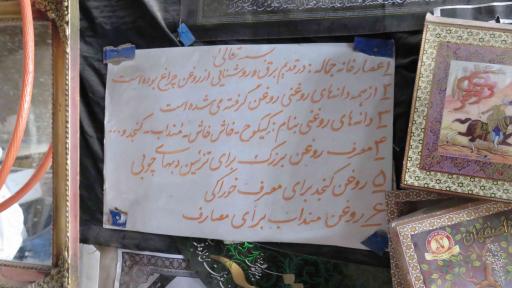 بسمه تعالی
۱ اعصارخانه جماله: در قدیم برق و روشنایی از روغن چراغ بوده است
۲ از همه دانه‌های روغنی روغن گرفته می‌شده است
۳ دانه‌های روغنی بنام: -خاش خاش-منداب-کنجد و...
۴ مصرف روغن بزرک برای تزیین دربهای چوبی
۵ روغن کنجد برای مصرف خوراکی
۶ روغن منداب برای مصارف